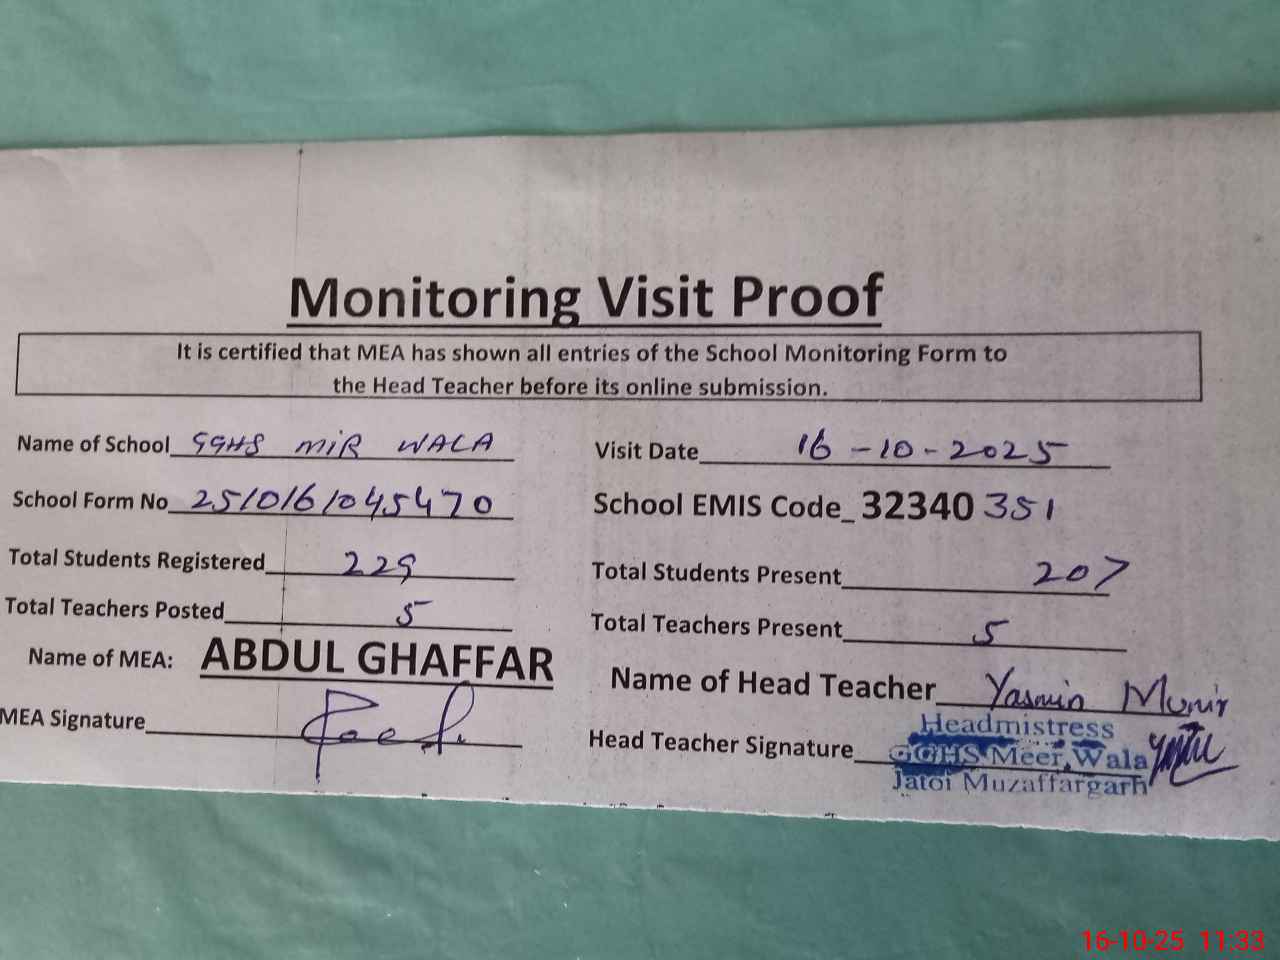 Monitoring Visit Proof
It is certified that MEA has shown all entries of the School Monitoring Form to
the Head Teacher before its online submission.
Name of School GGHS MIR WALA
Visit Date 16-10-2025
School Form No 2510161045470
School EMIS Code_ 32340351
Total Students Registered 229
Total Students Present 207
Total Teachers Posted 5
Total Teachers Present 5
Name of MEA: ABDUL GHAFFAR
Name of Head Teacher Yasmin Munir
MEA Signature
Head Teacher Signature
Headmistress
GGHS Meer Wala
Jatoi Muzaffargarh
16-10-25 11:33